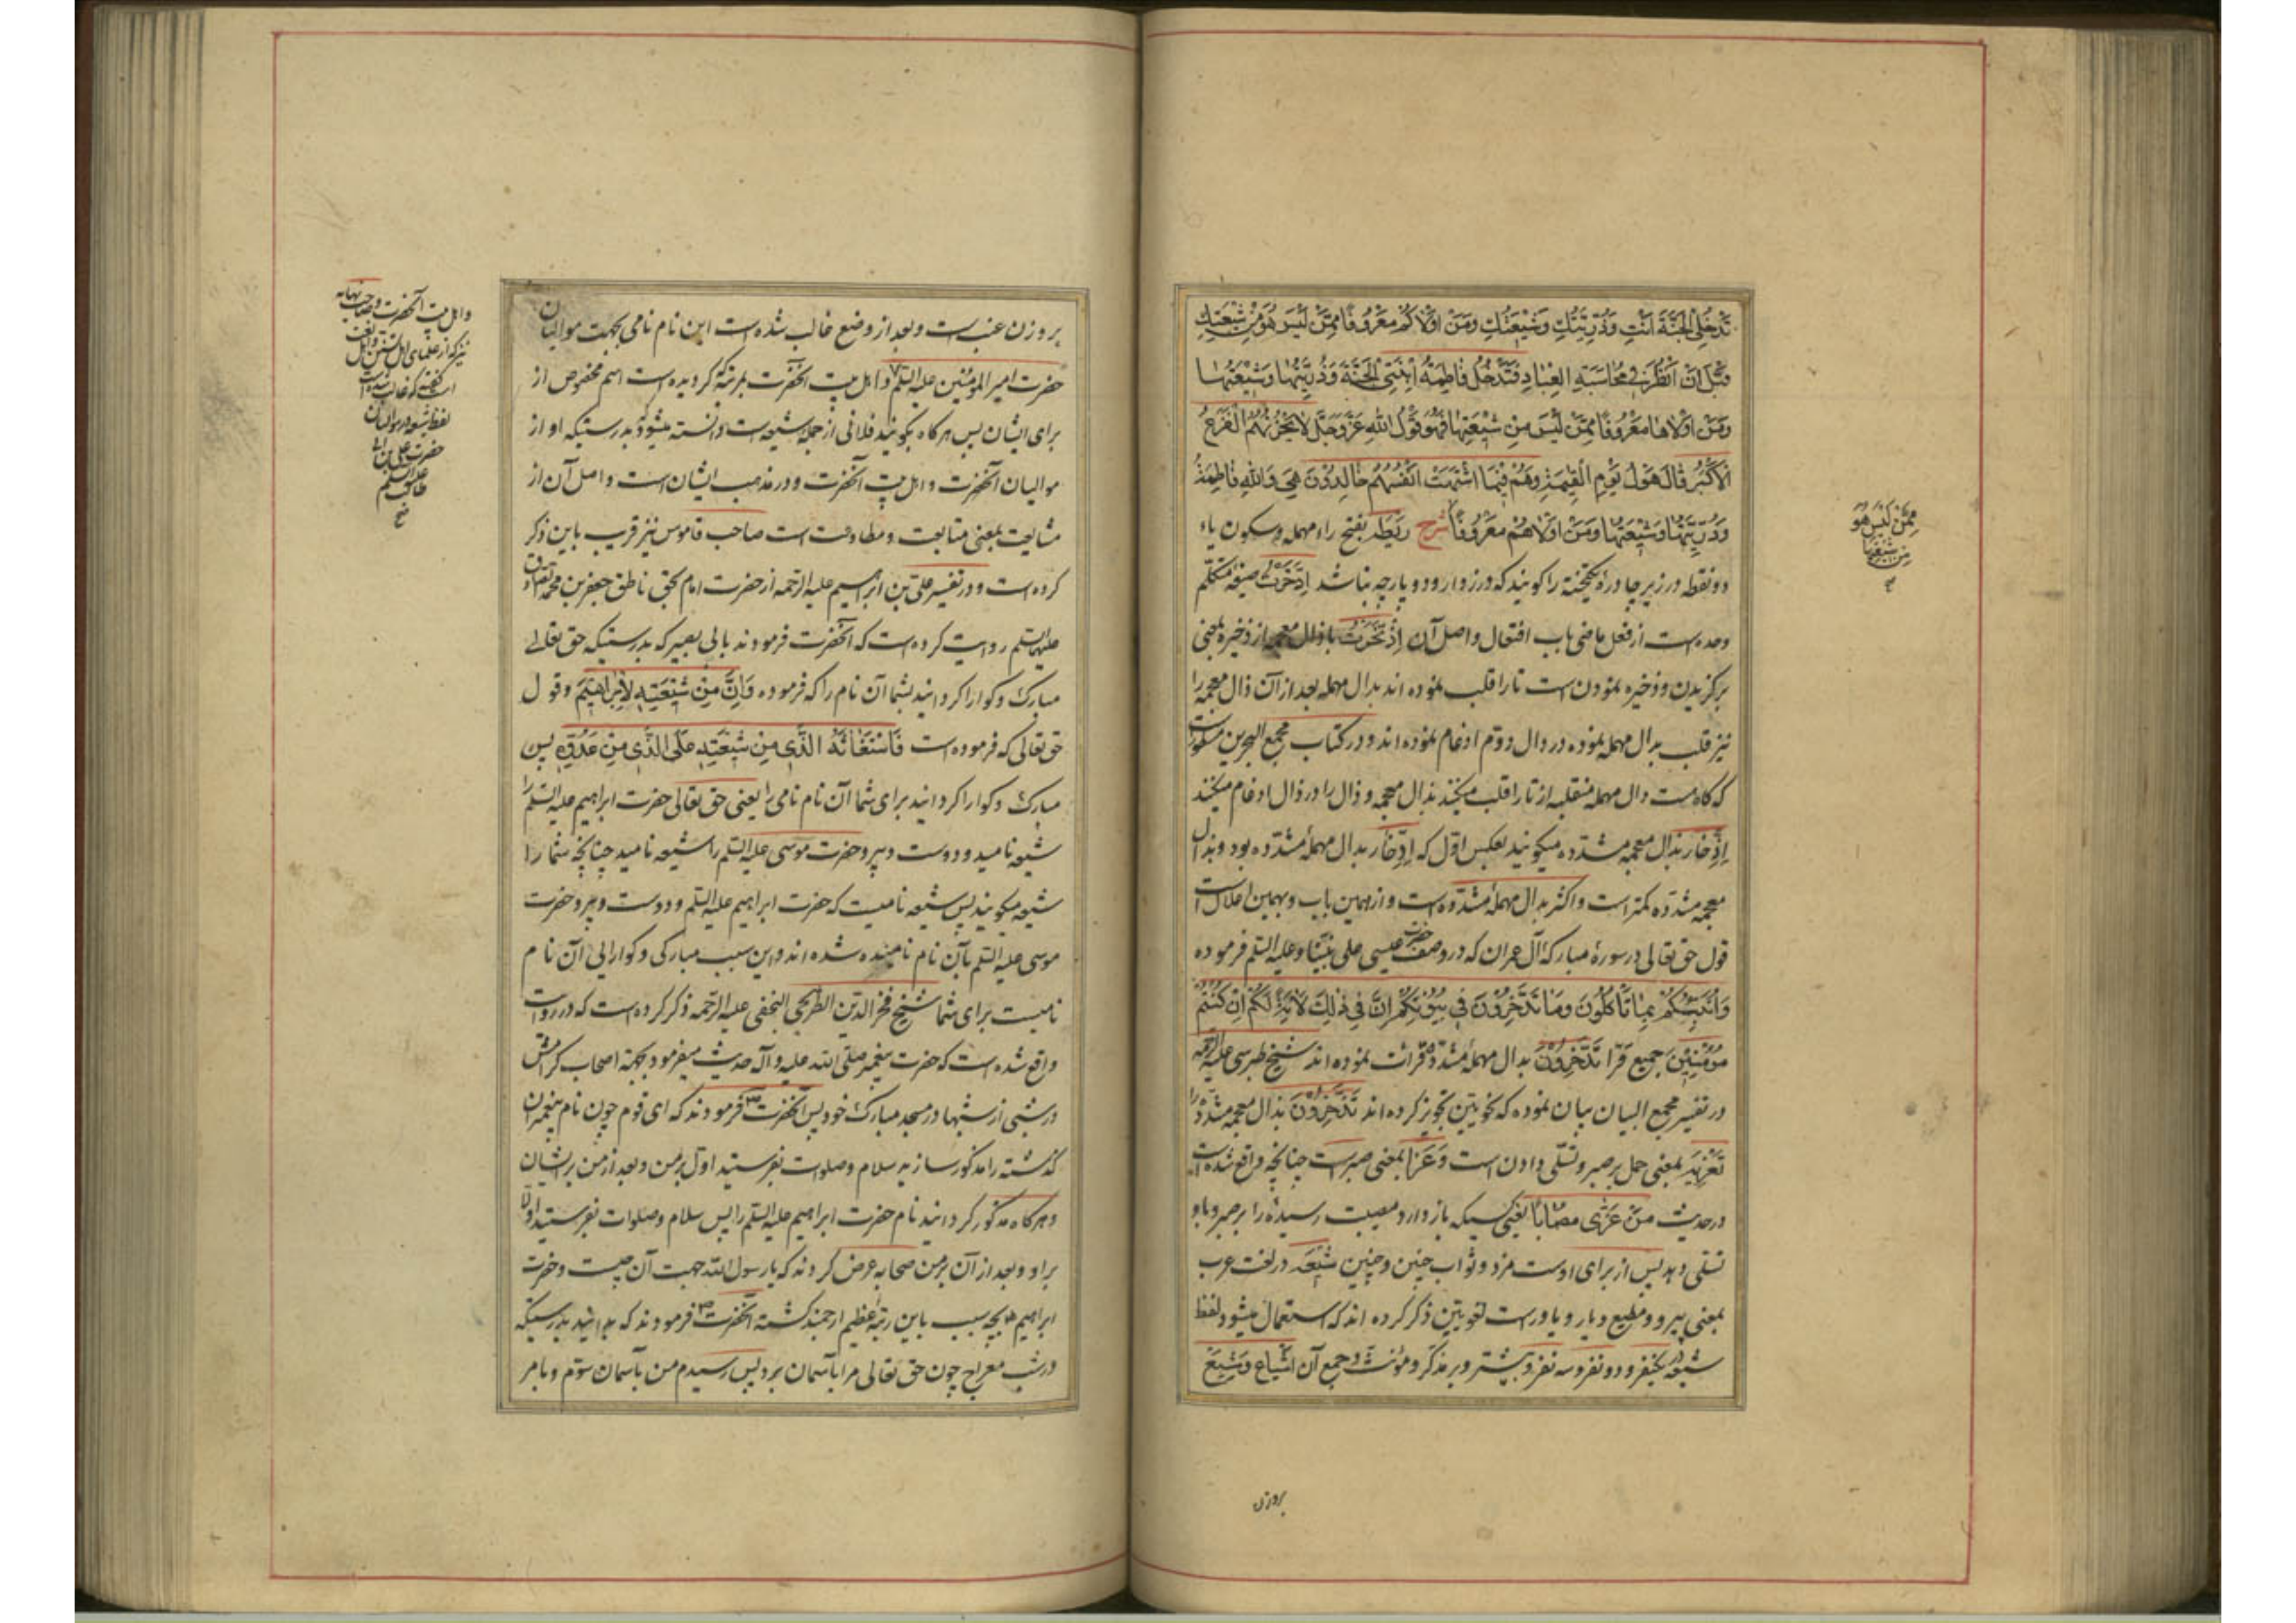 تَدْخُلِي الجَنَّةَ اَنْتِ وَذُرِّيَّتُكِ وَشِيْعَتُكِ وَمَنْ اَوْلَاكُمْ مَعْرُوْفًا مِمَّنْ لَيْسَ هُوَ مِنْ شِيْعَتِكِ
قَبْلَ اَنْ اَنْظُرَ فِي مُحَاسَبَةِ العِبَادِ فَتَدْخُلُ فَاطِمَةُ اِبْنَتِي الْجَنَّةَ وَذُرِّيَّتُهَا وَشِيْعَتُهَا
وَمَنْ اَوْلَاهَا مَعْرُوْفًا مِمَّنْ لَيْسَ مِنْ شِيْعَتِهَا فَهُوَ قَوْلُ اللهِ عَزَّ وَجَلَّ لَا يَحْزُنُهُمُ الْفَزَعُ
الْاَكْبَرُ قَالَ هَوْلُ يَوْمِ الْقِيٰمَةِ وَهُمْ فِيْمَا اشْتَهَتْ اَنْفُسُهُمْ خَالِدُوْنَ هِيَ وَاللهِ فَاطِمَةُ
وَذُرِّيَّتُهَا وَشِيْعَتُهَا وَمَنْ اَوْلَاهُمْ مَعْرُوْفًا شرح رَيْطَه بفتح راء مهمله و سکون یاء
دو نقطه در زیر چادر یکتخته را کویند که درزدار و دو پارچه نباشد اِدَّخَرْتُ صیغهٔ متکلّم
وحده است از فعل ماضی باب افتعال و اصل آن اِذْتَخَرْتُ با ذال معجمه از ذخیره بمعنی
برکزیدن و ذخیره نمودن است تا را قلب نموده اند بدال مهمله بعد از آن ذال معجمه را
نیز قلب بدال مهمله نموده در دال دوّم ادغام نموده اند و در کتاب مجمع البحرین مسطور است
که کاهست دال مهمله منقلبه از تا را قلب میکنند بذال معجمه و ذال را در ذال ادغام میکنند
اِذّخار بذال معجمه مشدّده میکویند بعکس اوّل که اِدّخار بدال مهملهٔ مشدّده بود و بذال
معجمه مشدّده کمتر است و اکثر بدال مهملهٔ مشدّده است و از همین باب و بهمین اعلال است
قول حق تعالی در سورهٔ مبارکهٔ آل عمران که در وصف حضرت عیسی علی نبیّنا و علیه السّلم فرموده
وَاُنَبِّئُكُمْ بِمَا تَأْكُلُوْنَ وَمَا تَدَّخِرُوْنَ فِي بُيُوْتِكُمْ اِنَّ فِي ذٰلِكَ لَاٰيَةً لَكُمْ اِنْ كُنْتُمْ
مُؤْمِنِيْنَ جمیع قرّا تَدَّخِرُوْنَ بدال مهملهٔ مشدّده قرائت نموده اند شیخ طبرسی علیه الرّحمه
در تفسیر مجمع البیان بیان نموده که نحویّین تجویز کرده اند تَذَّخِرُوْنَ بذال معجمه مشدّد را
تَعْزِيَه بمعنی حمل بر صبر و تسلّی دادن است و عَزَا بمعنی صبر است چنانچه واقع شده است
در حدیث مَنْ عَزّٰی مصابًا یعنی کسیکه باز دارد مصیبت رسیده را بر صبر و باو
تسلّی دهد پس از برای اوست مزد و ثواب چنین و چنین شِیْعَه در لغت عرب
بمعنی پیرو و مطیع و یار و یاور است لغویّین ذکر کرده اند که استعمال میشود لفظ
شیعه در یکنفر و دو نفر و سه نفر و بیشتر و بر مذکّر و مؤنّث و جمع آن اَشْیَاع وَ شِیَعْ
مِمَّنْ لَيْسَ هُوَ
مِنْ شِيْعَتِهَا
بر وزن
بر وزن عنب است و بعد از وضع غالب شده است این نام نامی بجهت موالیان
حضرت امیر المؤمنین علیه السّلم و اهل بیت آنحضرت بمرتبهٔ که کردیده است اسم مخصوص از
برای ایشان پس هرکاه بکویند فلانی از جملهٔ شیعه است دانسته میشود که بدرستیکه او از
موالیان آنحضرت و اهل بیت آنحضرت و در مذهب ایشان است و اصل آن از
مشایعت بمعنی متابعت و مطاوعت است صاحب قاموس نیز قریب باین ذکر
کرده است و در تفسیر علی بن ابراهیم علیه الرّحمه از حضرت امام بحق ناطق جعفر بن محمّد الصّادق
علیهما السّلم روایت کرده است که آنحضرت فرمودند بابی بصیر که بدرستیکه حق تعالی
مبارک و کوارا کرداند بشما آن نام را که فرموده وَاِنَّ مِنْ شِيْعَتِهِ لَاِبْرَاهِيْمَ و قول
حق تعالی که فرموده است فَاسْتَغَاثَهُ الَّذِي مِنْ شِيْعَتِهِ عَلَى الَّذِي مِنْ عَدُوِّهِ پس
مبارک و کوارا کرداند برای شما آن نام نامی را یعنی حق تعالی حضرت ابراهیم علیه السّلم را
شیعه نامید و دوست و پیرو حضرت موسی علیه السّلم را شیعه نامید چنانچه شما را
شیعه میکویند پس شیعه نامیست که حضرت ابراهیم علیه السّلم و دوست و پیرو حضرت
موسی علیه السّلم بآن نام نامیده شده اند و این سبب مبارکی و کوارایی آن نام
نامیست برای شما شیخ فخر الدّین الطریحی النجفی علیه الرّحمه ذکر کرده است که در روایت
واقع شده است که حضرت پیغمبر صلّی الله علیه و آله حدیث میفرمود بجهة اصحاب کرامش
در شبی از شبها در مسجد مبارک خود پس آنحضرت ص فرمودند که ای قوم چون نام پیغمبران
کذشته را مذکور سازید سلام و صلوات بفرستید اوّل بر من و بعد از من بر ایشان
و هرکاه مذکور کردانید نام حضرت ابراهیم علیه السّلم را پس سلام و صلوات بفرستید اوّلا
بر او و بعد از آن بر من صحابه عرض کردند که یا رسول الله جهت آن چیست و حضرت
ابراهیم ع بچه سبب باین رتبهٔ عظیم ارجمند کشته آنحضرت ص فرمودند که بدانید بدرستیکه
در شب معراج چون حق تعالی مرا بآسمان برد پس رسیدم من بآسمان سوّم و بامر
و اهل بیت آنحضرت و صاحب نهایه
نیز که از علمای اهل تسنّن و اهل لغت
است کفته که غالب شده است
لفظ شیعه در موالیان
حضرت علی بن ابی
طالب علیه السّلم